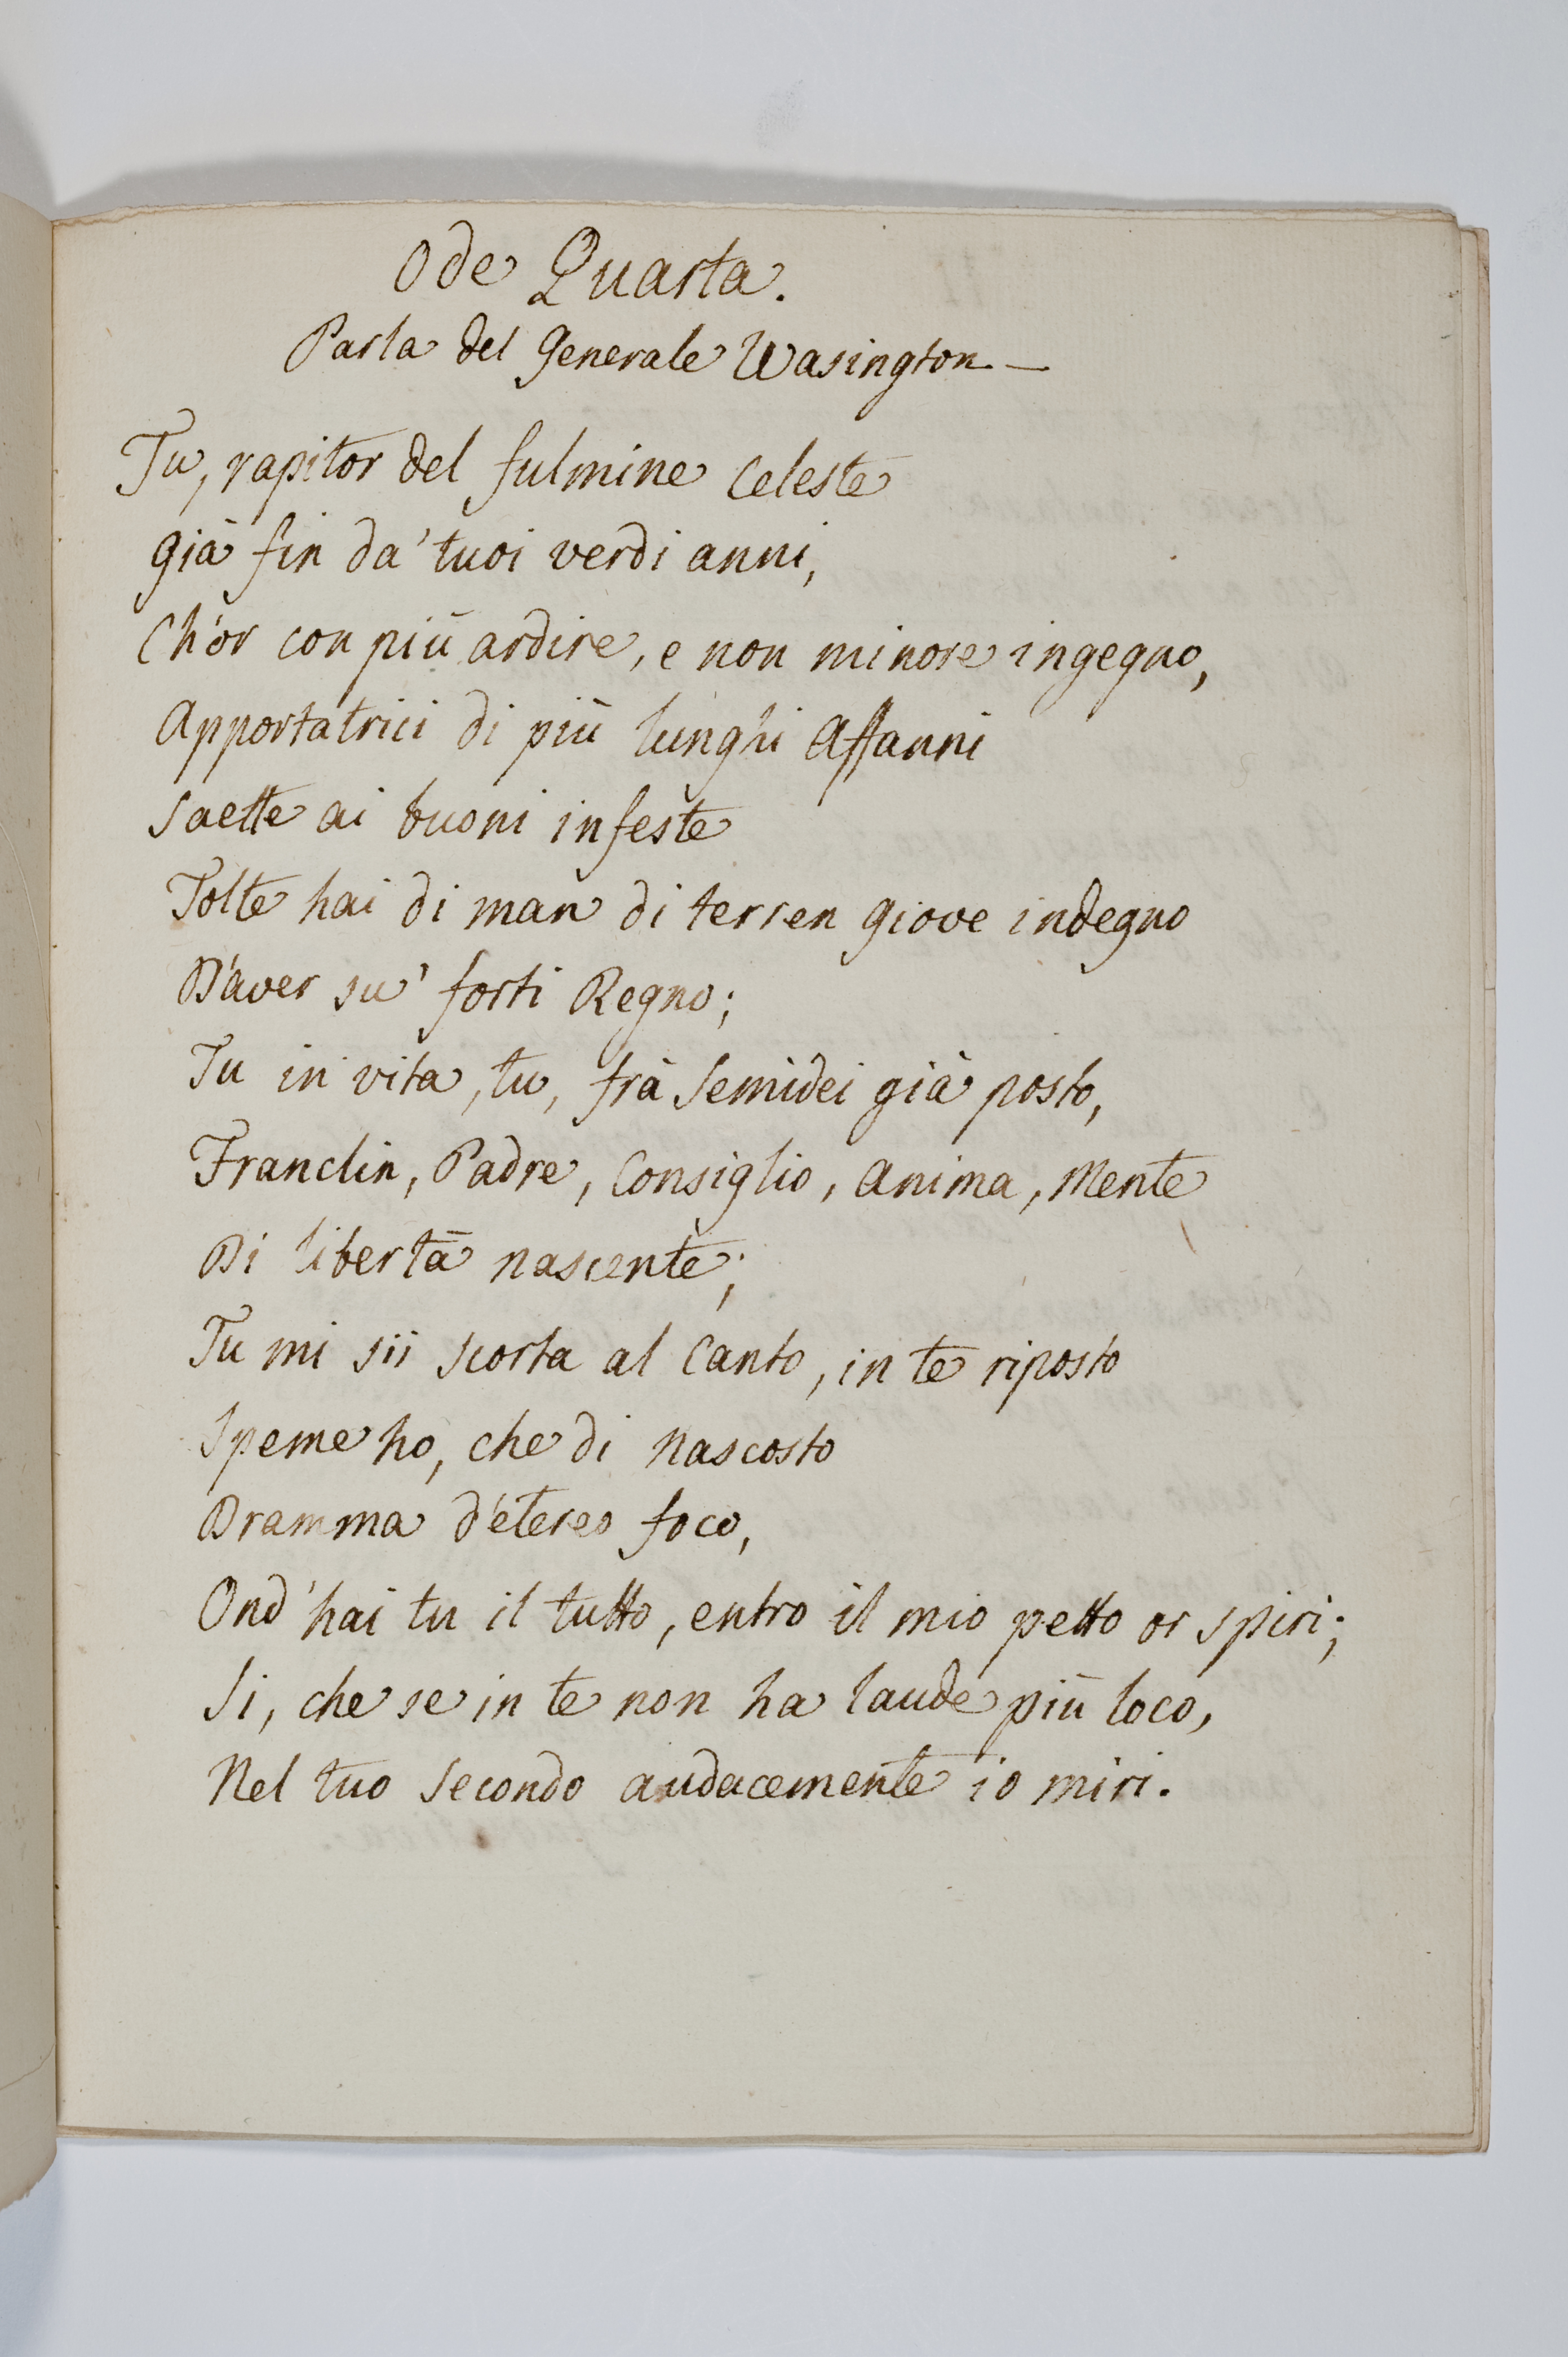 Ode Quarta.
Parla del Generale Wasington —
Tu, rapitor del fulmine Celeste
Già fin da' tuoi verdi anni,
Ch'or con più ardire, e non minore ingegno,
Apportatrici di più lunghi Affanni
Saette ai buoni infeste
Tolte hai di man di terren Giove indegno
D'aver su' forti Regno;
Tu in vita, tu, frà Semidei già posto,
Franclin, Padre, Consiglio, Anima, Mente
Di libertà nascente;
Tu mi sii scorta al Canto, in te riposto
Speme ho, che di nascosto
Dramma d'etereo foco,
Ond' hai tu il tutto, entro il mio petto or spiri;
Si, che se in te non ha laude più loco,
Nel tuo Secondo audacemente io miri.